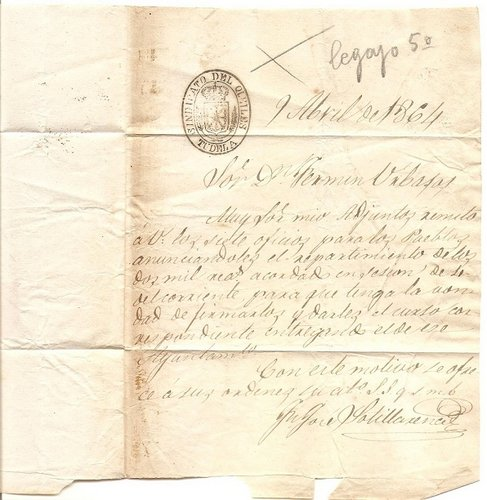 legajo 5º
SINDICATO DEL QUEILES
TUDELA
9 Abril de 1864
Sór Dn Fermin Urbasos
Muy Sór mio Adjuntos remito
á V. los siete oficios para los Pueblos
anunciandoles el repartimiento de los
dos mil reas acordad en sesion de
del corriente para que tenga la bon
dad de firmarlos y darles el curso cor
respondiente entregando el de ese
Ayuntamto
Con este motivo se ofre
ce a sus ordenes su ato S. S. q s m b
José